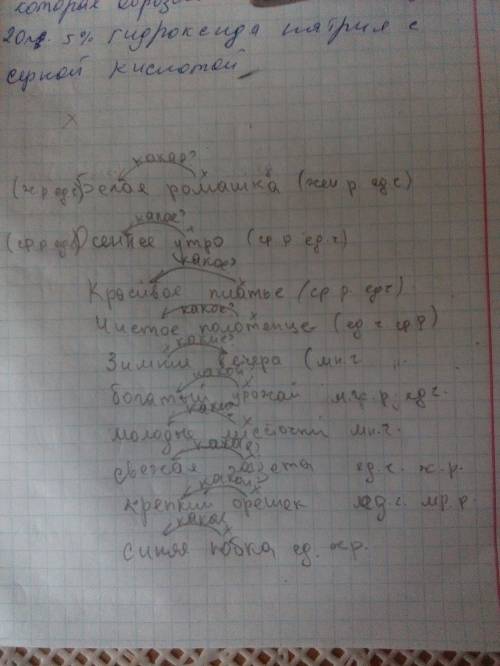 которая образов
20 5% гидроксида натрия с
серной кислотой
какая?
(ж р ед с) Белая ромашка (жен р. ед с)
какое?
(ср р ед ч) Осеннее утро (ср р ед. ч)
какое?
Красивое платье (ср р. ед ч)
какое?
Чистое полотенце (ед ч ср р)
какие?
Зимние вечера (мн.ч
какой?
богатый урожай м.ж.р, ед ч.
какие
молодые листочки мн.ч.
какая?
свежая газеты ед.ч. ж.р.
какой?
крепкий орешек ед.ч. мр.р.
какая?
синяя юбка ед. жр.